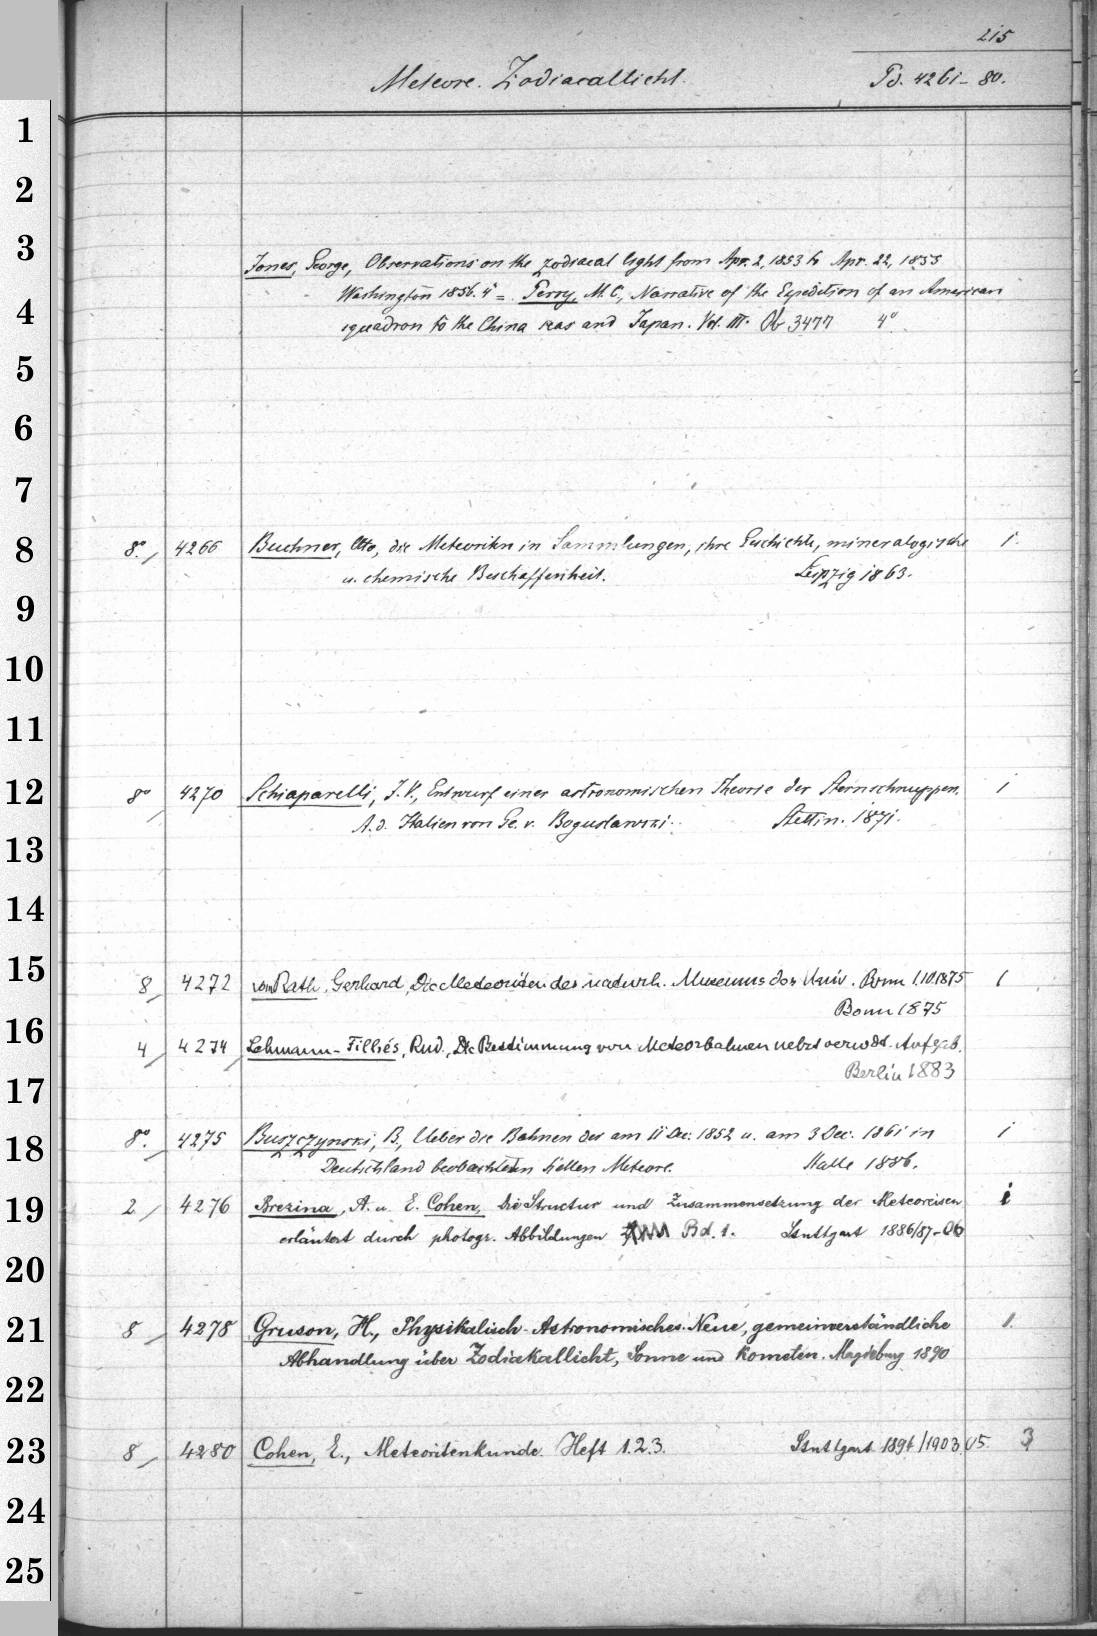 1
2
3
4
5
6
7
8
9
10
11
12
13
14
15
16
17
18
19
20
21
22
23
24
25
215
Meteore. Zodiacallicht. Pd. 4261-80.
Jones, George, Observations on the zodiacal light from Apr. 2, 1853 to Apr. 22, 1855
Washington 1856. 4° = Perry, M. C., Narrative of the Expedition of an American
squadron to the China seas and Japan. Vol. III. Ob 3477 4°
8°. 4266 Buchner, Otto, die Meteoriten in Sammlungen, ihre Geschichte, mineralogische 1.
u. chemische Beschaffenheit. Leipzig 1863.
8° 4270 Schiaparelli, J. V., Entwurf einer astronomischen Theorie der Sternschnuppen. 1
A. d. Italien von Ge. v. Boguslawski. Stettin. 1871.
8 4272 vom Rath, Gerhard, Die Meteoriten des naturh. Museums der Univ. Bonn 1.10.1875 1
Bonn 1875
4 4274 Lehmann-Filhés, Rud., Die Bestimmung von Meteorbahnen nebst verwdt. Aufgab.
Berlin 1883
8°. 4275 Buszczynski, B., Ueber die Bahnen der am 11 Dec. 1852 u. am 3 Dec. 1861 in 1
Deutschland beobachteten hellen Meteore. Halle 1886.
2 4276 Brezina, A. u. E. Cohen, Die Structur und Zusammensetzung der Meteoreisen 1
erläutert durch photogr. Abbildungen Bd. 1. Stuttgart 1886/87-06
8 4278 Gruson, H., Physikalisch-Astronomisches. Neue, gemeinverständliche 1.
Abhandlung über Zodiakallicht, Sonne und Kometen. Magdeburg 1890
8 4280 Cohen, E., Meteoritenkunde. Heft 1.2.3. Stuttgart 1894/1903.05. 3